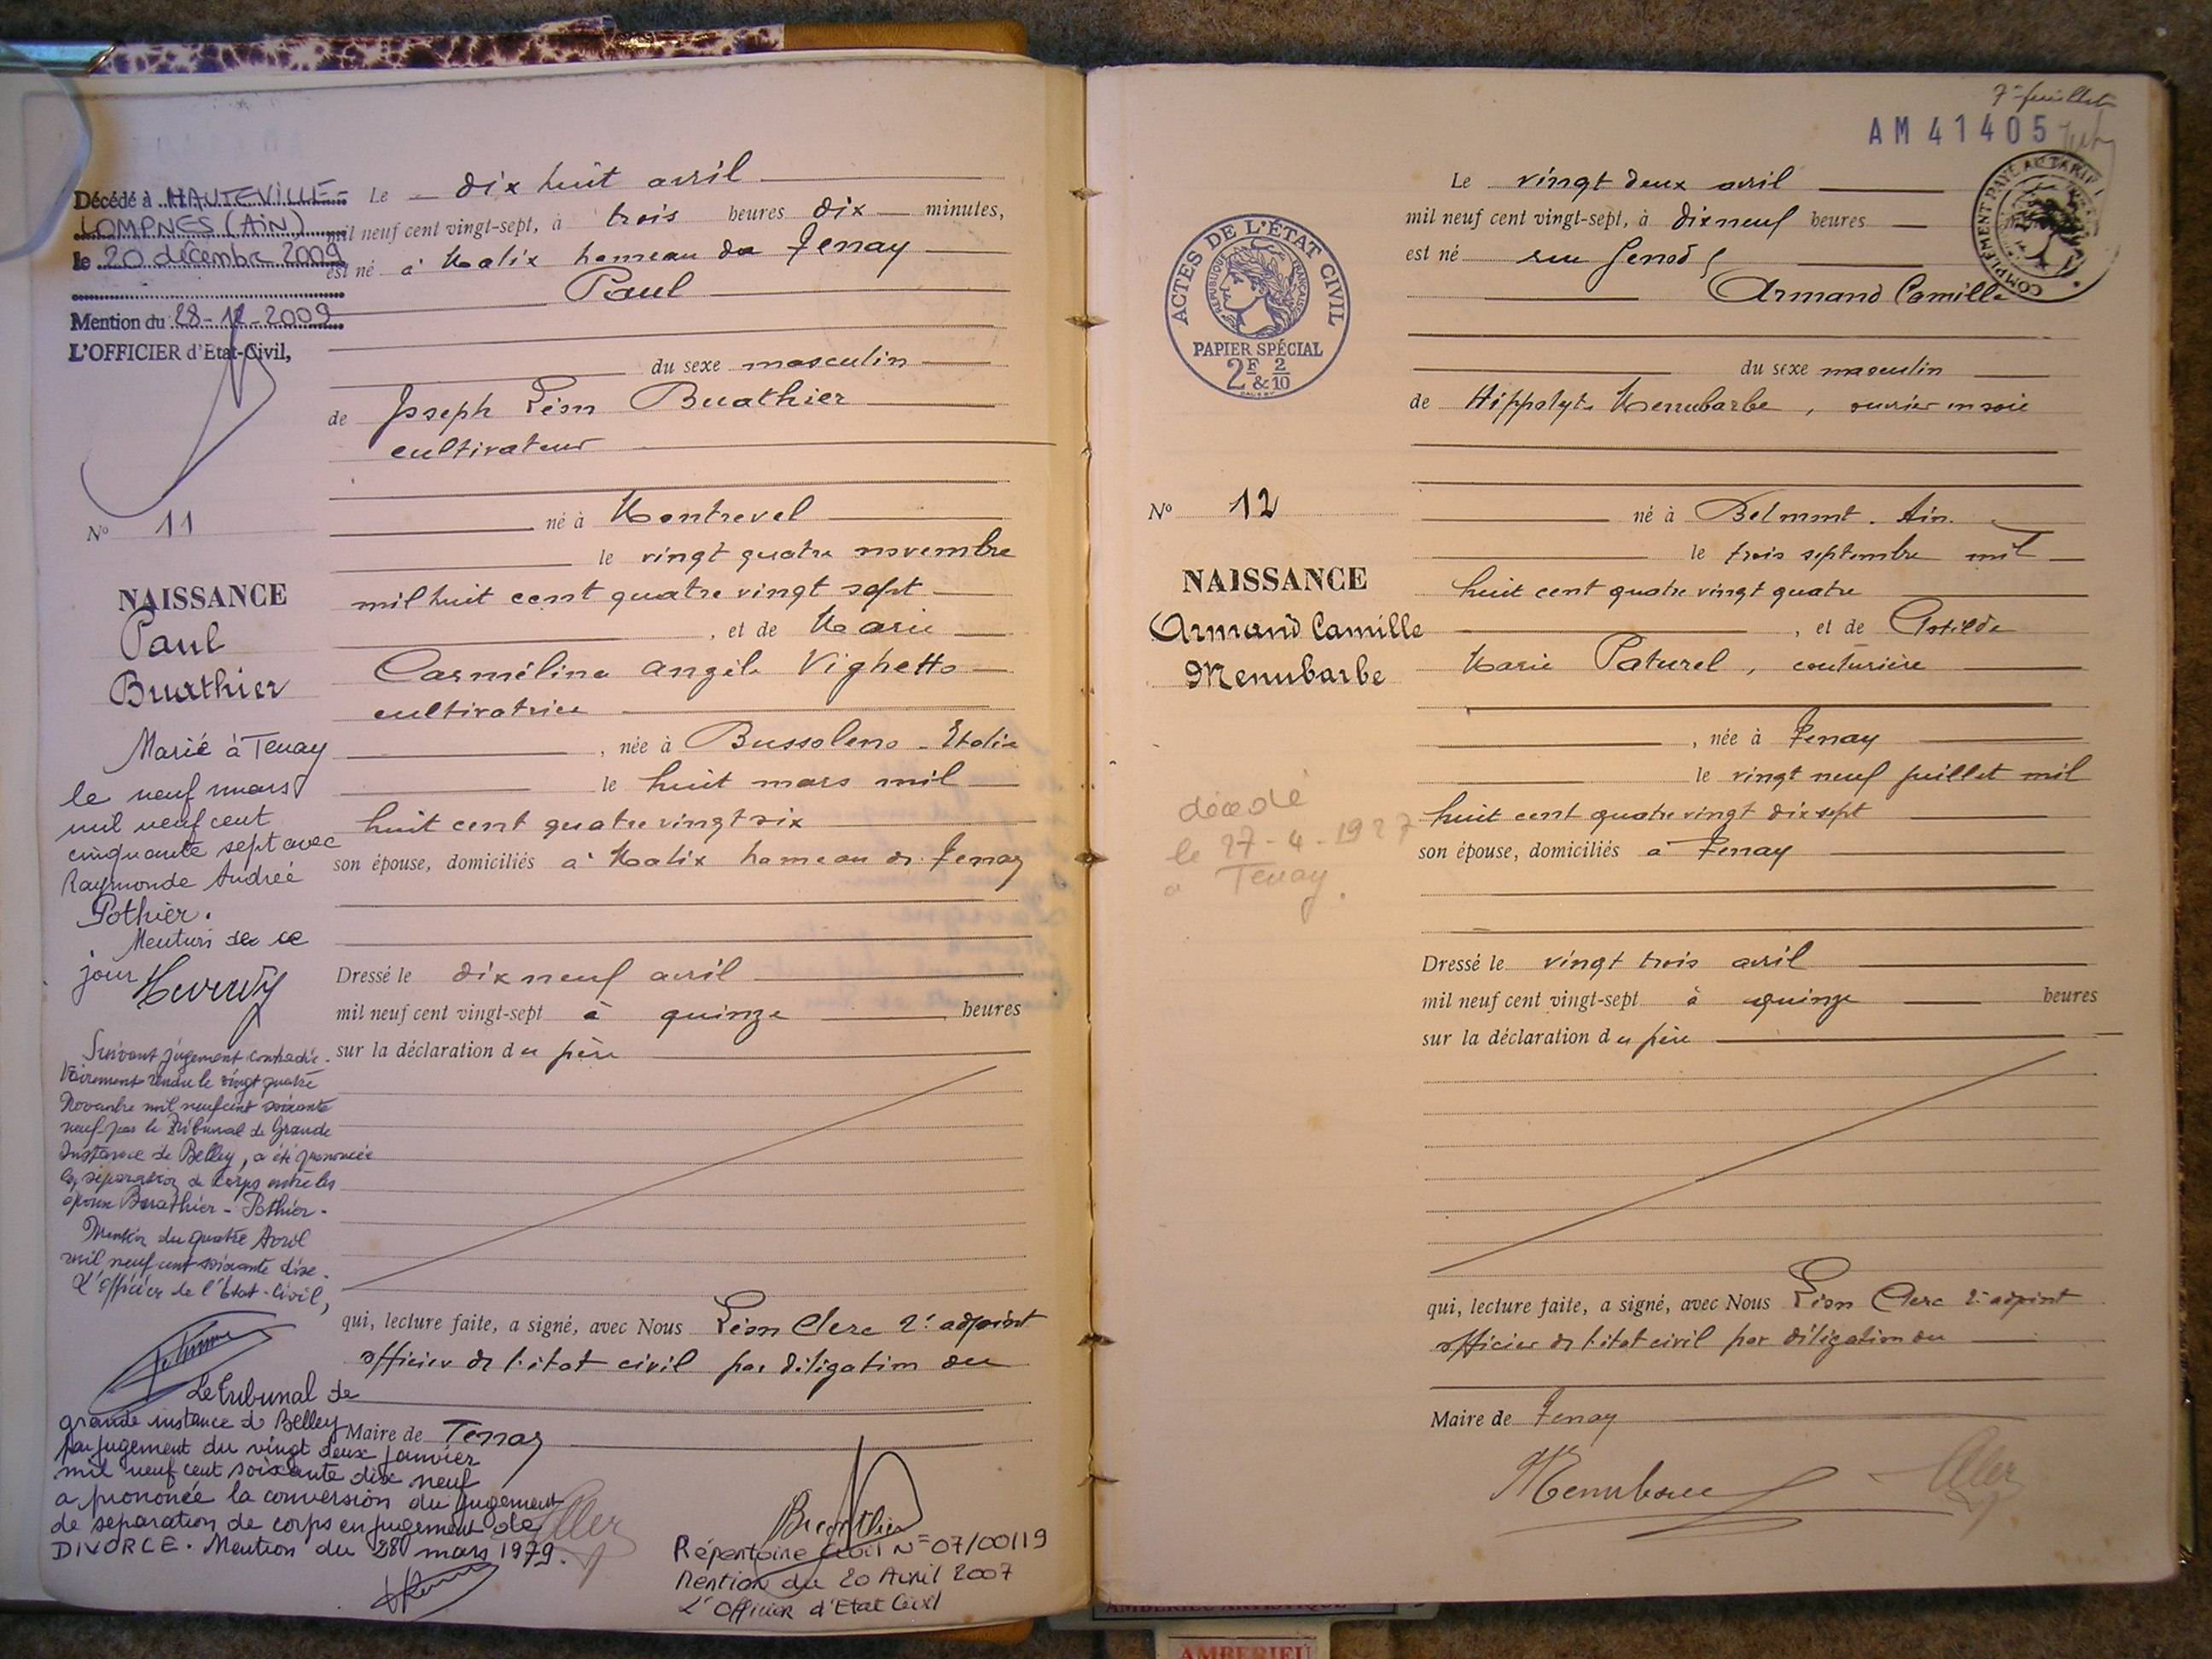 Décédé à HAUTEVILLE-
LOMPNES (AIN)
le 20 décembre 2009
Mention du 28-12-2009
L'OFFICIER d'Etat-Civil,
N° 11
NAISSANCE
Paul
Buathier
Marié à Tenay
le neuf mars
mil neuf cent
cinquante sept avec
Raymonde Andrée
Pothier.
Mention de ce
jour
Suivant jugement contradic-
toirement rendu le vingt quatre
Novembre mil neuf cent soixante
neuf par le Tribunal de Grande
Instance de Belley, a été prononcée
la séparation de corps entre les
époux Buathier - Pothier-
Mention du quatre Avril
mil neuf cent soixante dix.
L'Officier de l'Etat-Civil,
Le tribunal de
grande instance de Belley
par jugement du vingt deux janvier
mil neuf cent soixante dix neuf
a prononcée la conversion du jugement
de separation de corps en jugement de
DIVORCE. Mention du 28 mars 1979.
Le dix huit avril
mil neuf cent vingt-sept, à trois heures dix minutes,
est né à Malix hameau de Tenay
Paul
du sexe masculin
de Joseph Léon Buathier
cultivateur
né à Montrevel
le vingt quatre novembre
mil huit cent quatre vingt sept
, et de Marie
Carméline Angèle Vighetto
cultivatrice
, née à Bussoleno - Italie
le huit mars mil
huit cent quatre vingt six
son épouse, domiciliés à Malix hameau de Tenay
Dressé le dix neuf avril
mil neuf cent vingt-sept à quinze heures
sur la déclaration du père
qui, lecture faite, a signé, avec Nous Léon Clerc 2e adjoint
officier de l'état civil par délégation du
Maire de Tenay
Buathier
Clerc
Répertoire Civil N° 07/00119
Mention du 20 Avril 2007
L'Officier d'Etat Civil
7e feuillet
AM 41405
COMPLÉMENT PAYÉ AU TARIF
ACTES DE L'ÉTAT CIVIL
RÉPUBLIQUE FRANÇAISE
PAPIER SPÉCIAL
2F & 2/10
N° 12
NAISSANCE
Armand Camille
Menubarbe
décédé
le 27-4-1927
à Tenay.
Le vingt deux avril
mil neuf cent vingt-sept, à dix neuf heures
est né rue Genod
Armand Camille
du sexe masculin
de Hippolyte Menubarbe, ouvrier en soie
né à Belmont. Ain.
le trois septembre mil
huit cent quatre vingt quatre
, et de Clotilde
Marie Paturel, couturière
, née à Tenay
le vingt neuf juillet mil
huit cent quatre vingt dix sept
son épouse, domiciliés à Tenay
Dressé le vingt trois avril
mil neuf cent vingt-sept à quinze heures
sur la déclaration du père
qui, lecture faite, a signé, avec Nous Léon Clerc 2e adjoint
officier de l'état civil par délégation du
Maire de Tenay
Clerc
AMBERIEU ARTISTIQUE
AMBERIEU